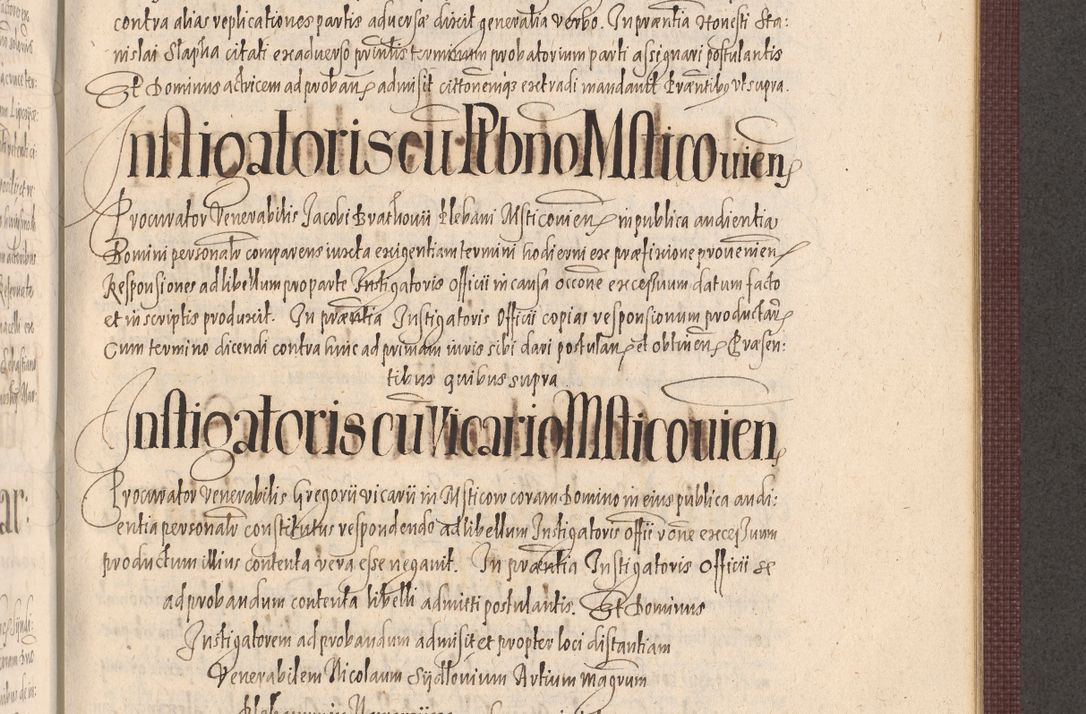 contra alias replicationes partis adversæ dixit generalia verbo. In præntia Honesti Sta:
nislai Slapha citati ex adverso primus terminum probatorium parti assignari postulantis
Et Dominus actricem ad proban admisit cittonemq3 extradi mandavit Præntibus ut supra.
Instigatoris cū Plbno Msticouien
Procurator Venerabilis Jacobi Brathouii Plebani Msticouien in publica audientia
Domini personalr comparens iuxta exigentiam termini hodierni ex præfixione provenien
Responsiones ad libellum pro parte Instigatoris Officii in causa occone excessuum datum facto
et in scriptis produxit. In præntia Instigatoris Officii copias responsionum productar
Cum termino dicendi contra hinc ad primam iuris sibi dari postulan et obtinen Præsen:
tibus quibus supra
Instigatoris cū Vicario Msticouien
Procurator Venerabilis Gregorii vicarii in Msticow coram Domino in eius publica audi:
entia personalr constitutus respondendo ad libellum Instigatoris Offii rōne excessuum
productum illius contenta vera esse negavit. In præntia Instigatoris Officii se
ad probandum contenta libelli admitti postulantis. Et Dominus
Instigatorem ad probandum admisit et propter loci distantiam
Venerabilem Nicolaum Sydlovium Artium magrum